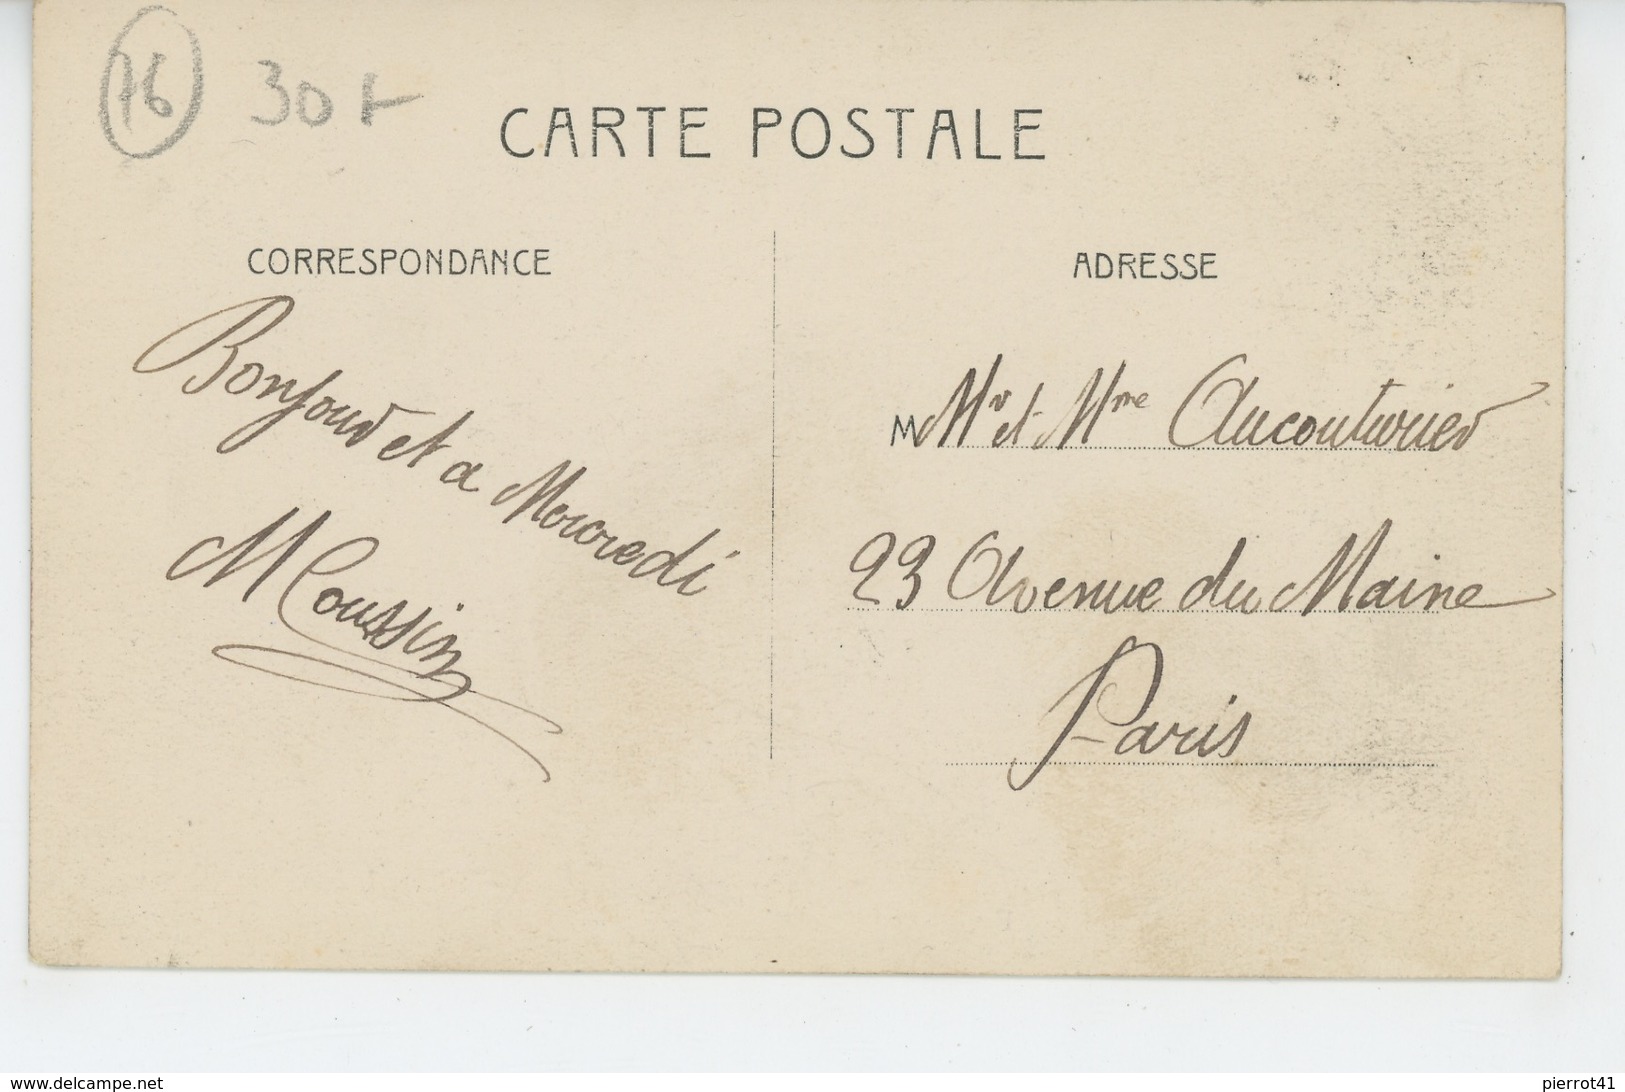 76 30F
CARTE POSTALE
CORRESPONDANCE
Bonjour et a Mercredi
M Coussin
ADRESSE
M Mr et Mme Aucouturier
23 Avenue du Maine
Paris
www.delcampe.net
pierrot41